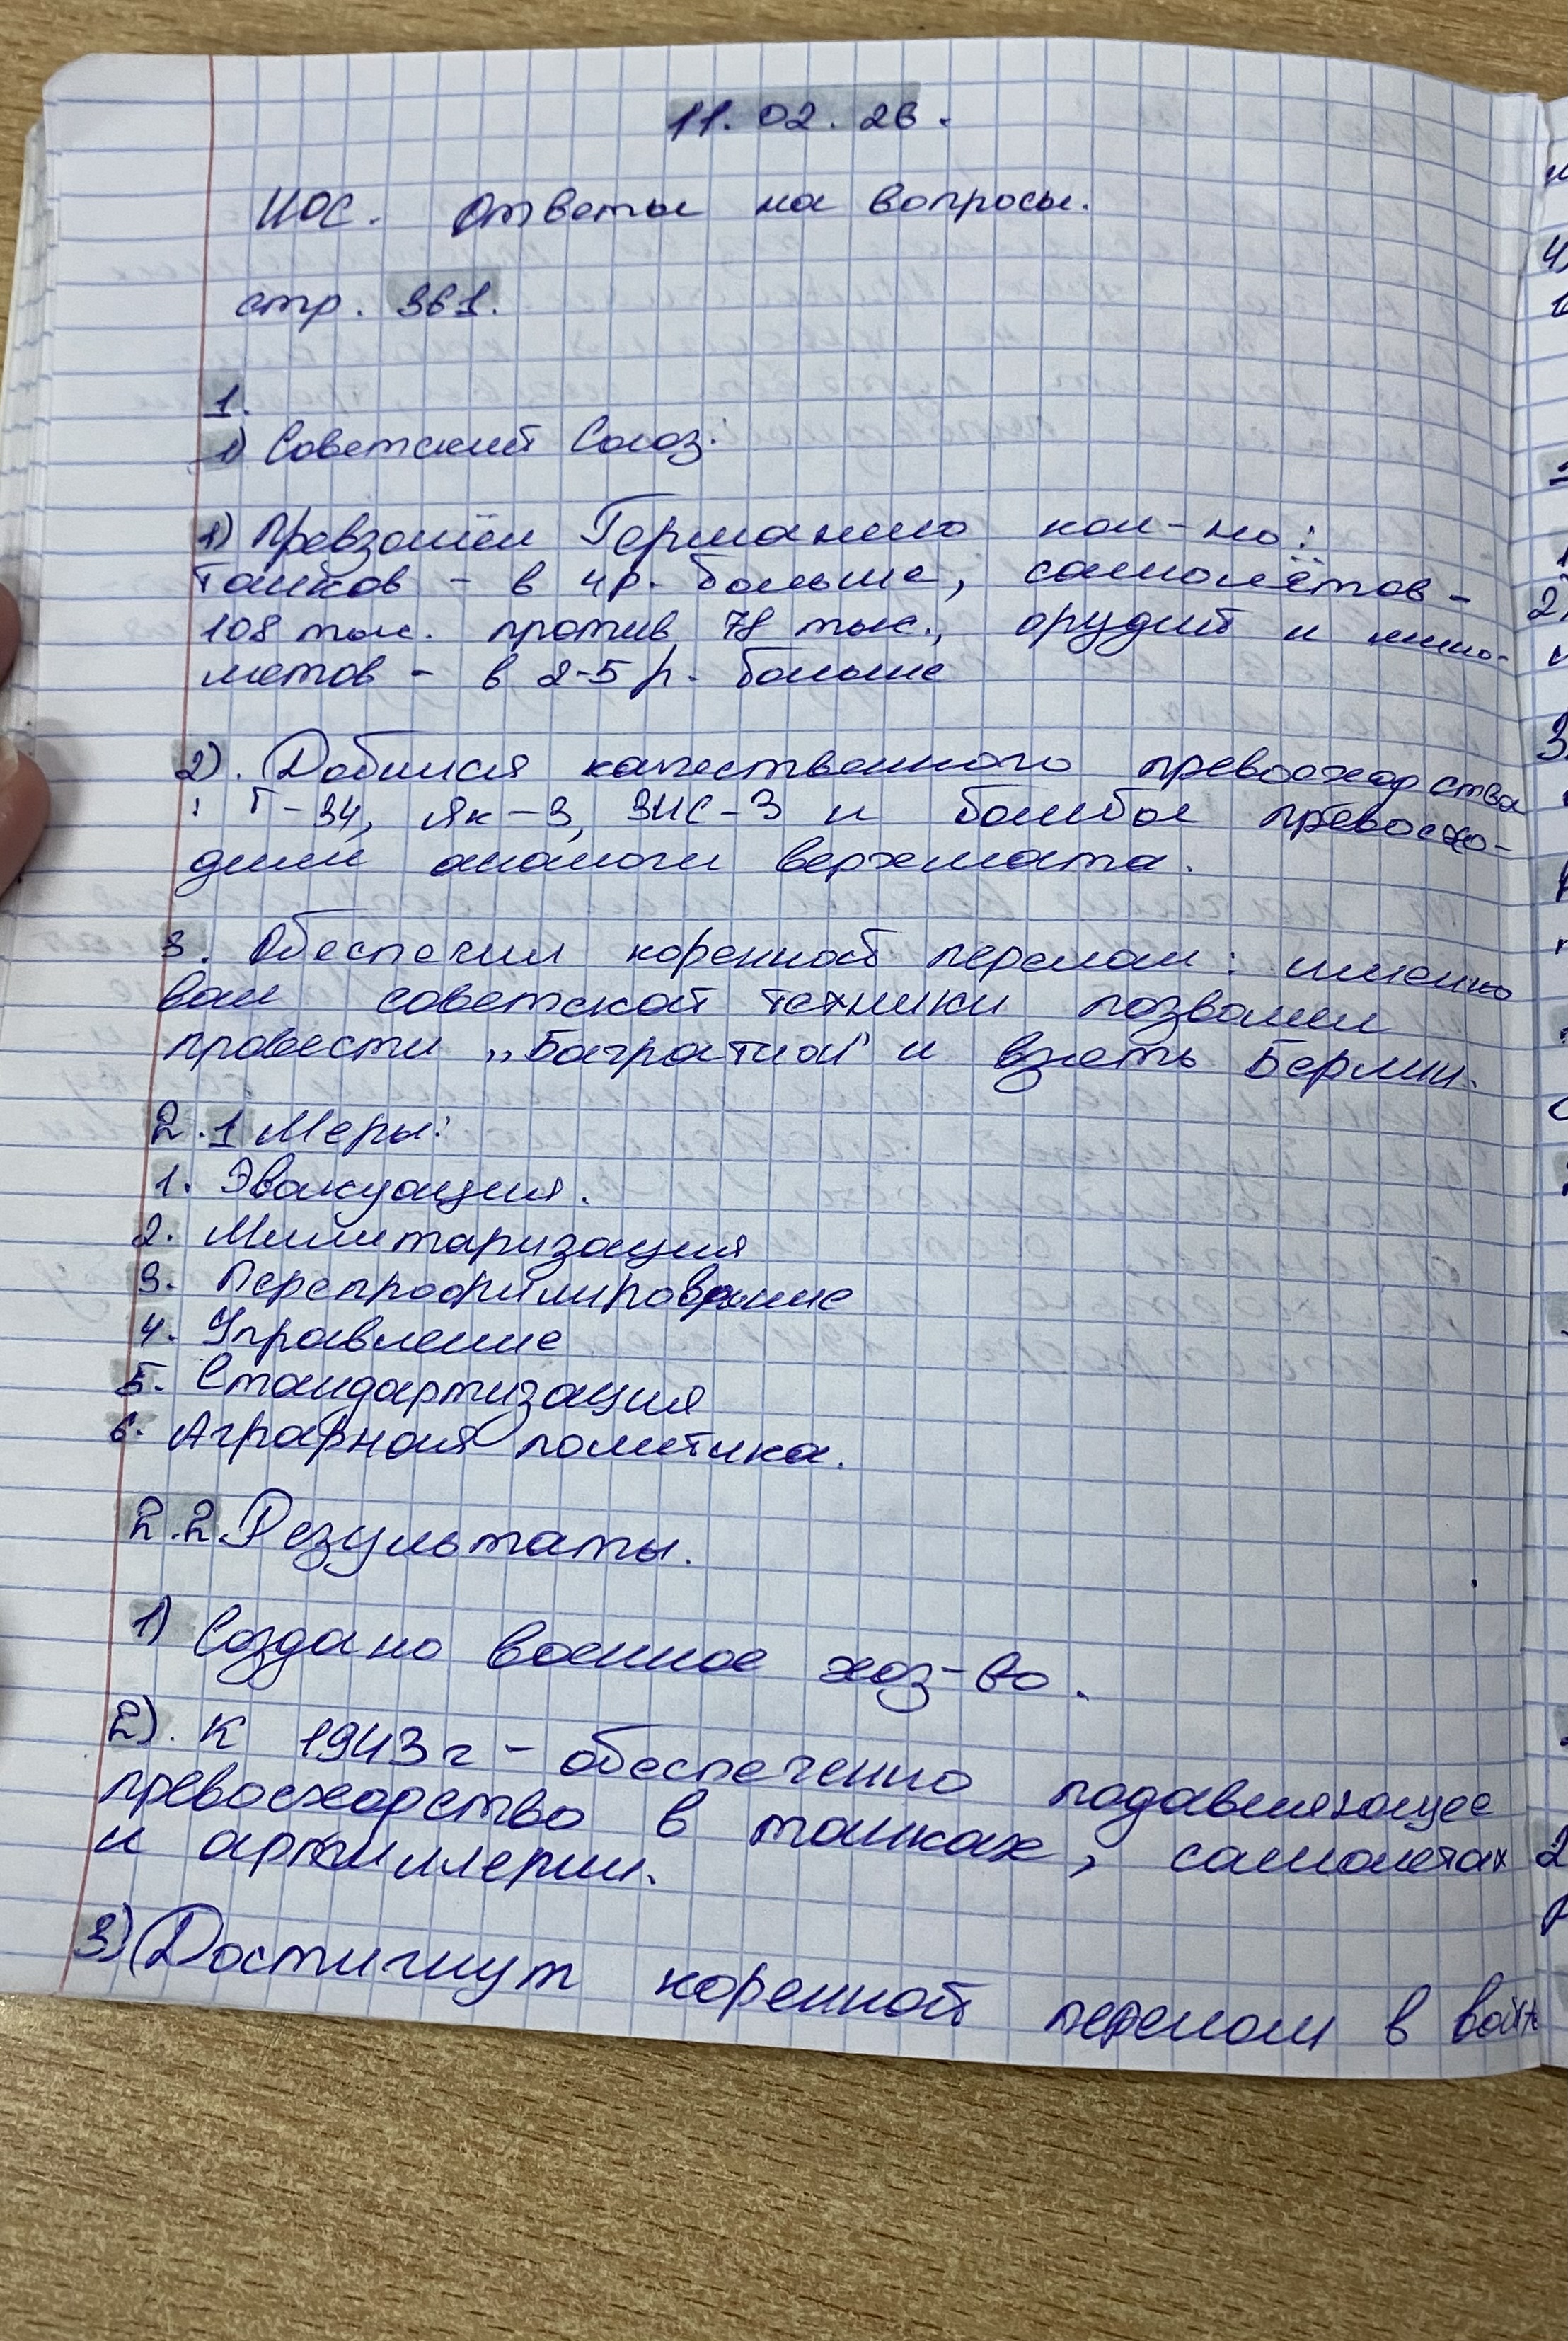 11.02.26.
ИОС. Ответы на вопросы.
стр. 361.
1.
1) Советский Союз:
1) Превзошёл Германию кол-но:
танков - в 4р. больше, самолётов -
108 тыс. против 78 тыс., орудий и мино-
метов - в 2-5 р. больше
2). Добился качественного превосходства
: Т-34, Як-3, ЗИС-3 и бомбы превосхо-
дили аналоги вермахта.
3. Обеспечил коренной перелом: именно
вал советской техники позволил
провести „Багратион" и взять Берлин.
2.1 Меры:
1. Эвакуация.
2. Милитаризация
3. Перепрофилирование
4. Управление
5. Стандартизация
6. Аграрная политика.
2.2. Результаты.
1) Создано военное хоз-во.
2). К 1943г - обеспеченно подавляющее
превосходство в танках, самолетах
и артиллерии.
3) Достигнут коренной перелом в войне